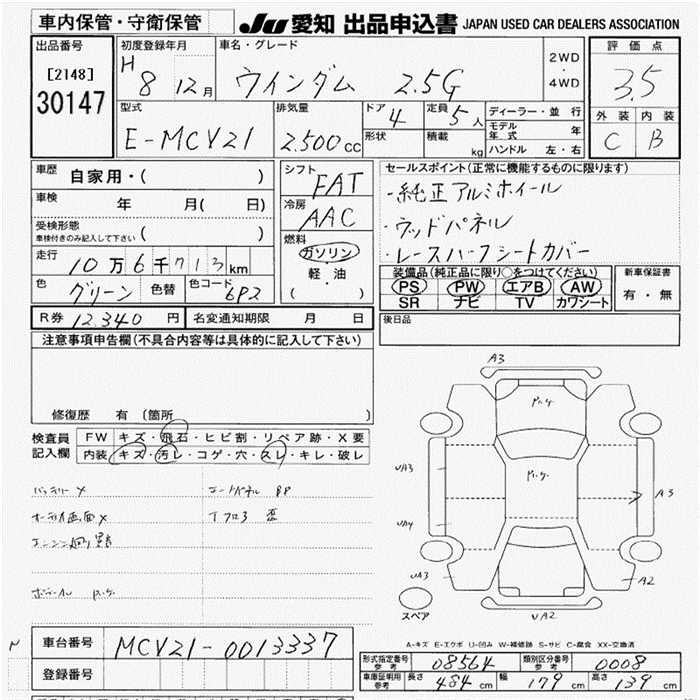 車内保管・守衛保管
JU 愛知 出品申込書 JAPAN USED CAR DEALERS ASSOCIATION
出品番号
[2148]
30147
初度登録年月
H 8 12月
車名・グレード
ウインダム 2.5G
2WD
・
4WD
評価点
3.5
外装 内装
C B
型式
E-MCV21
排気量
2.500cc
ドア
4
定員
5人
形状
積載
kg
ディーラー・並行
モデル年式 年
ハンドル 左・右
車歴
自家用・( )
車検
年 月( 日)
受検形態
車検付きのみ記入して下さい ( )
走行
10万6千713km
色
グリーン
色替
色コード
6P2
シフト
FAT
冷房
AAC
燃料
ガソリン
軽・油
(・)
セールスポイント(正常に機能するものに限ります)
・純正アルミホイール
・ウッドパネル
・レースハーフシートカバー
装備品(純正品に限り○をつけてください)
PS PW エアB AW
SR ナビ TV カワシート
新車保証書
有・無
R券 12340円
名変通知期限 月 日
後日品
注意事項申告欄(不具合内容等は具体的に記入して下さい)
修復歴 有(箇所 )
検査員
記入欄
FW キズ・飛石・ヒビ割・リペア跡・X要
内装 キズ・汚レ・コゲ・穴・スレ・キレ・破レ
バッテリーX
オーディオ画面X
A3
UA3
UA4
UA3
A3
A2
UA2
スペア
A-キズ E-エクボ U-凹み W-補修跡 S-サビ C-腐食 XX-交換済
車台番号
MCV21-0013337
登録番号
形式指定番号
参考
08564
類別区分番号
参考
0008
車庫証明用
参考
長さ 484cm
幅 179cm
高さ 139cm